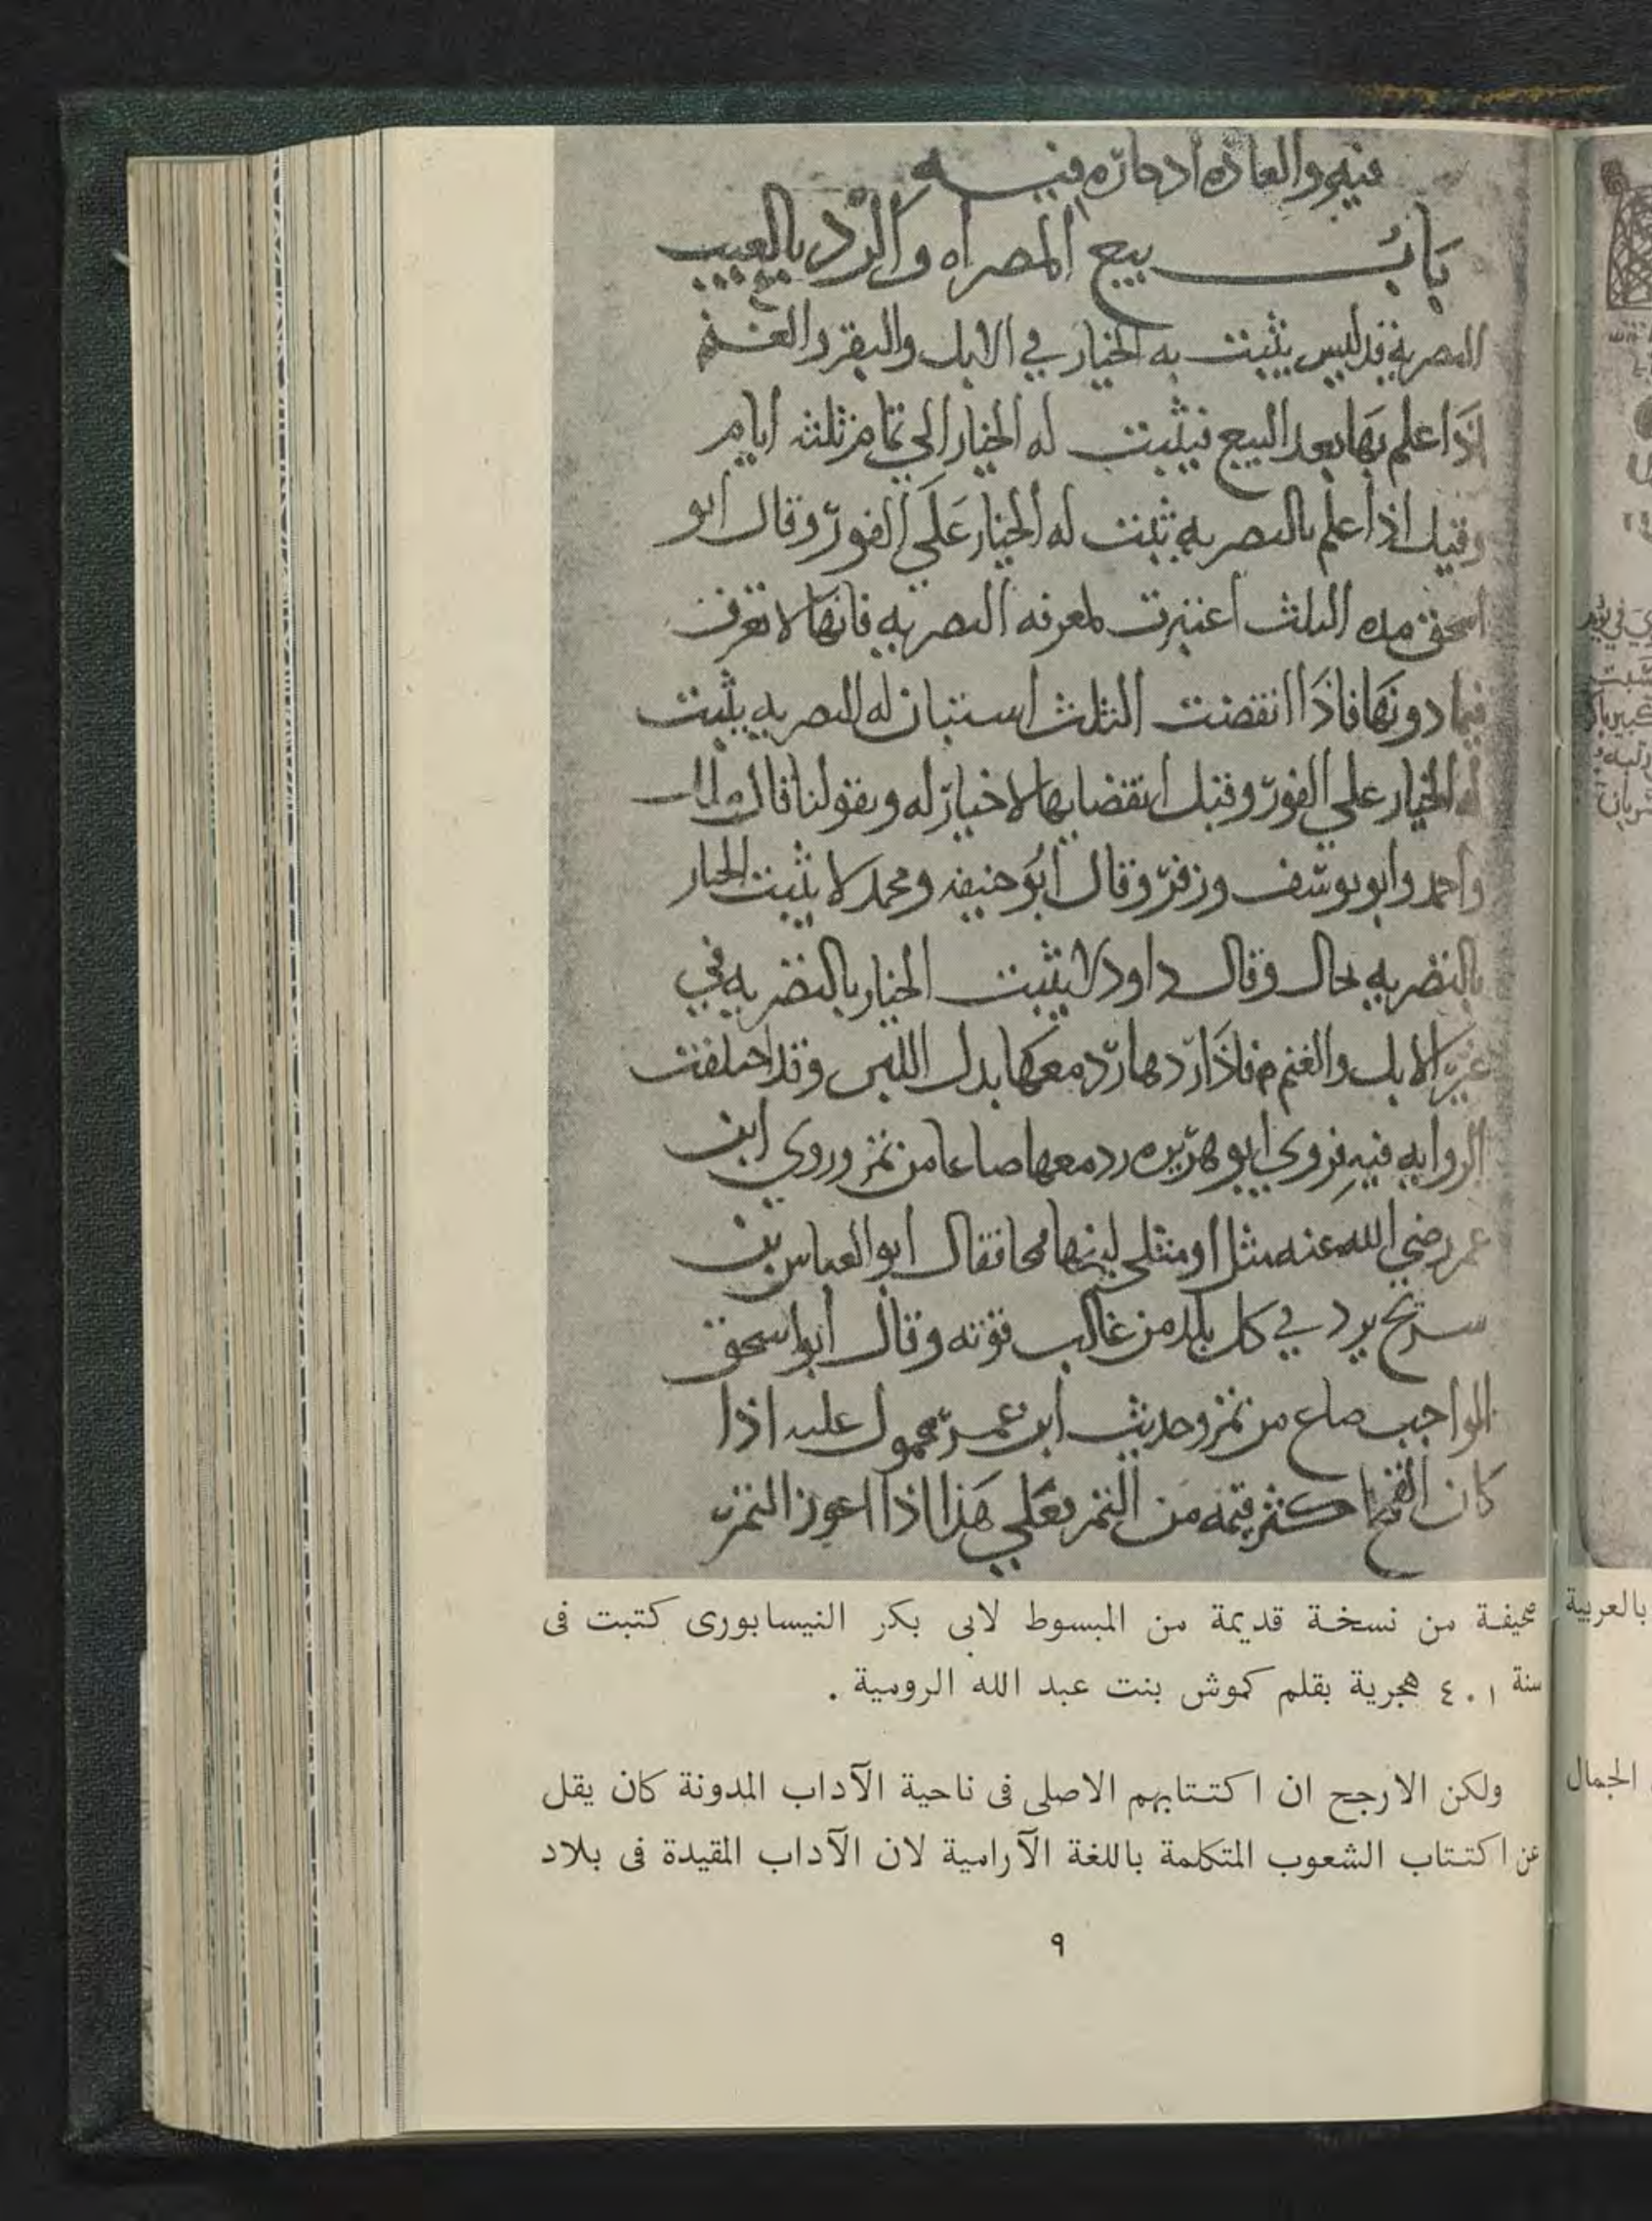 فيه والعاده ادخاره فيه
باب بيع المصراه والرد بالعيب
التصريه تدليس يثبت به الخيار في الابل والبقر والغنم
اذا علم بها بعد البيع فيثبت له الخيار الي تمام ثلثه ايام
وقيل اذا علم بالتصريه ثبت له الخيار علي الفور وقال ابو
اسحق مده الثلث اعتبرت لمعرفه التصريه فانها لا تعرف
فيما دونها فاذا انقضت الثلث استبان له التصريه يثبت
له الخيار علي الفور وقبل انقضايها لا خيار له وبقولنا قال ملك
واحمد وابو يوسف وزفر وقال ابو حنيفه ومحمد لا يثبت الخيار
بالتصريه بحال وقال داود لا يثبت الخيار بالتصريه في
غير الابل والغنم فاذا ردها رد معها بدل اللبن وقد اختلفت
الروايه فيه فروي ابو هريره رد معها صاعا من تمر وروي ابن
عمر رضي الله عنه مثل او مثلي لبنها قمحا فقال ابو العباس بن
سريج يرد في كل بلد من غالب قوته وقال ابو اسحق
الواجب صاع من تمر وحديث ابن عمر محمول عليه اذا
كان القمح اكثر قيمه من التمر فعلي هذا اذا اعوز التمر
صحيفة من نسخة قديمة من المبسوط لابى بكر النيسابورى كتبت فى
سنة ٤٠١ هجرية بقلم كموش بنت عبد الله الرومية .
ولكن الارجح ان اكتتابهم الاصلى فى ناحية الآداب المدونة كان يقل
عن اكتتاب الشعوب المتكلمة باللغة الآرامية لان الآداب المقيدة فى بلاد
٩
بالعربية
الجمال